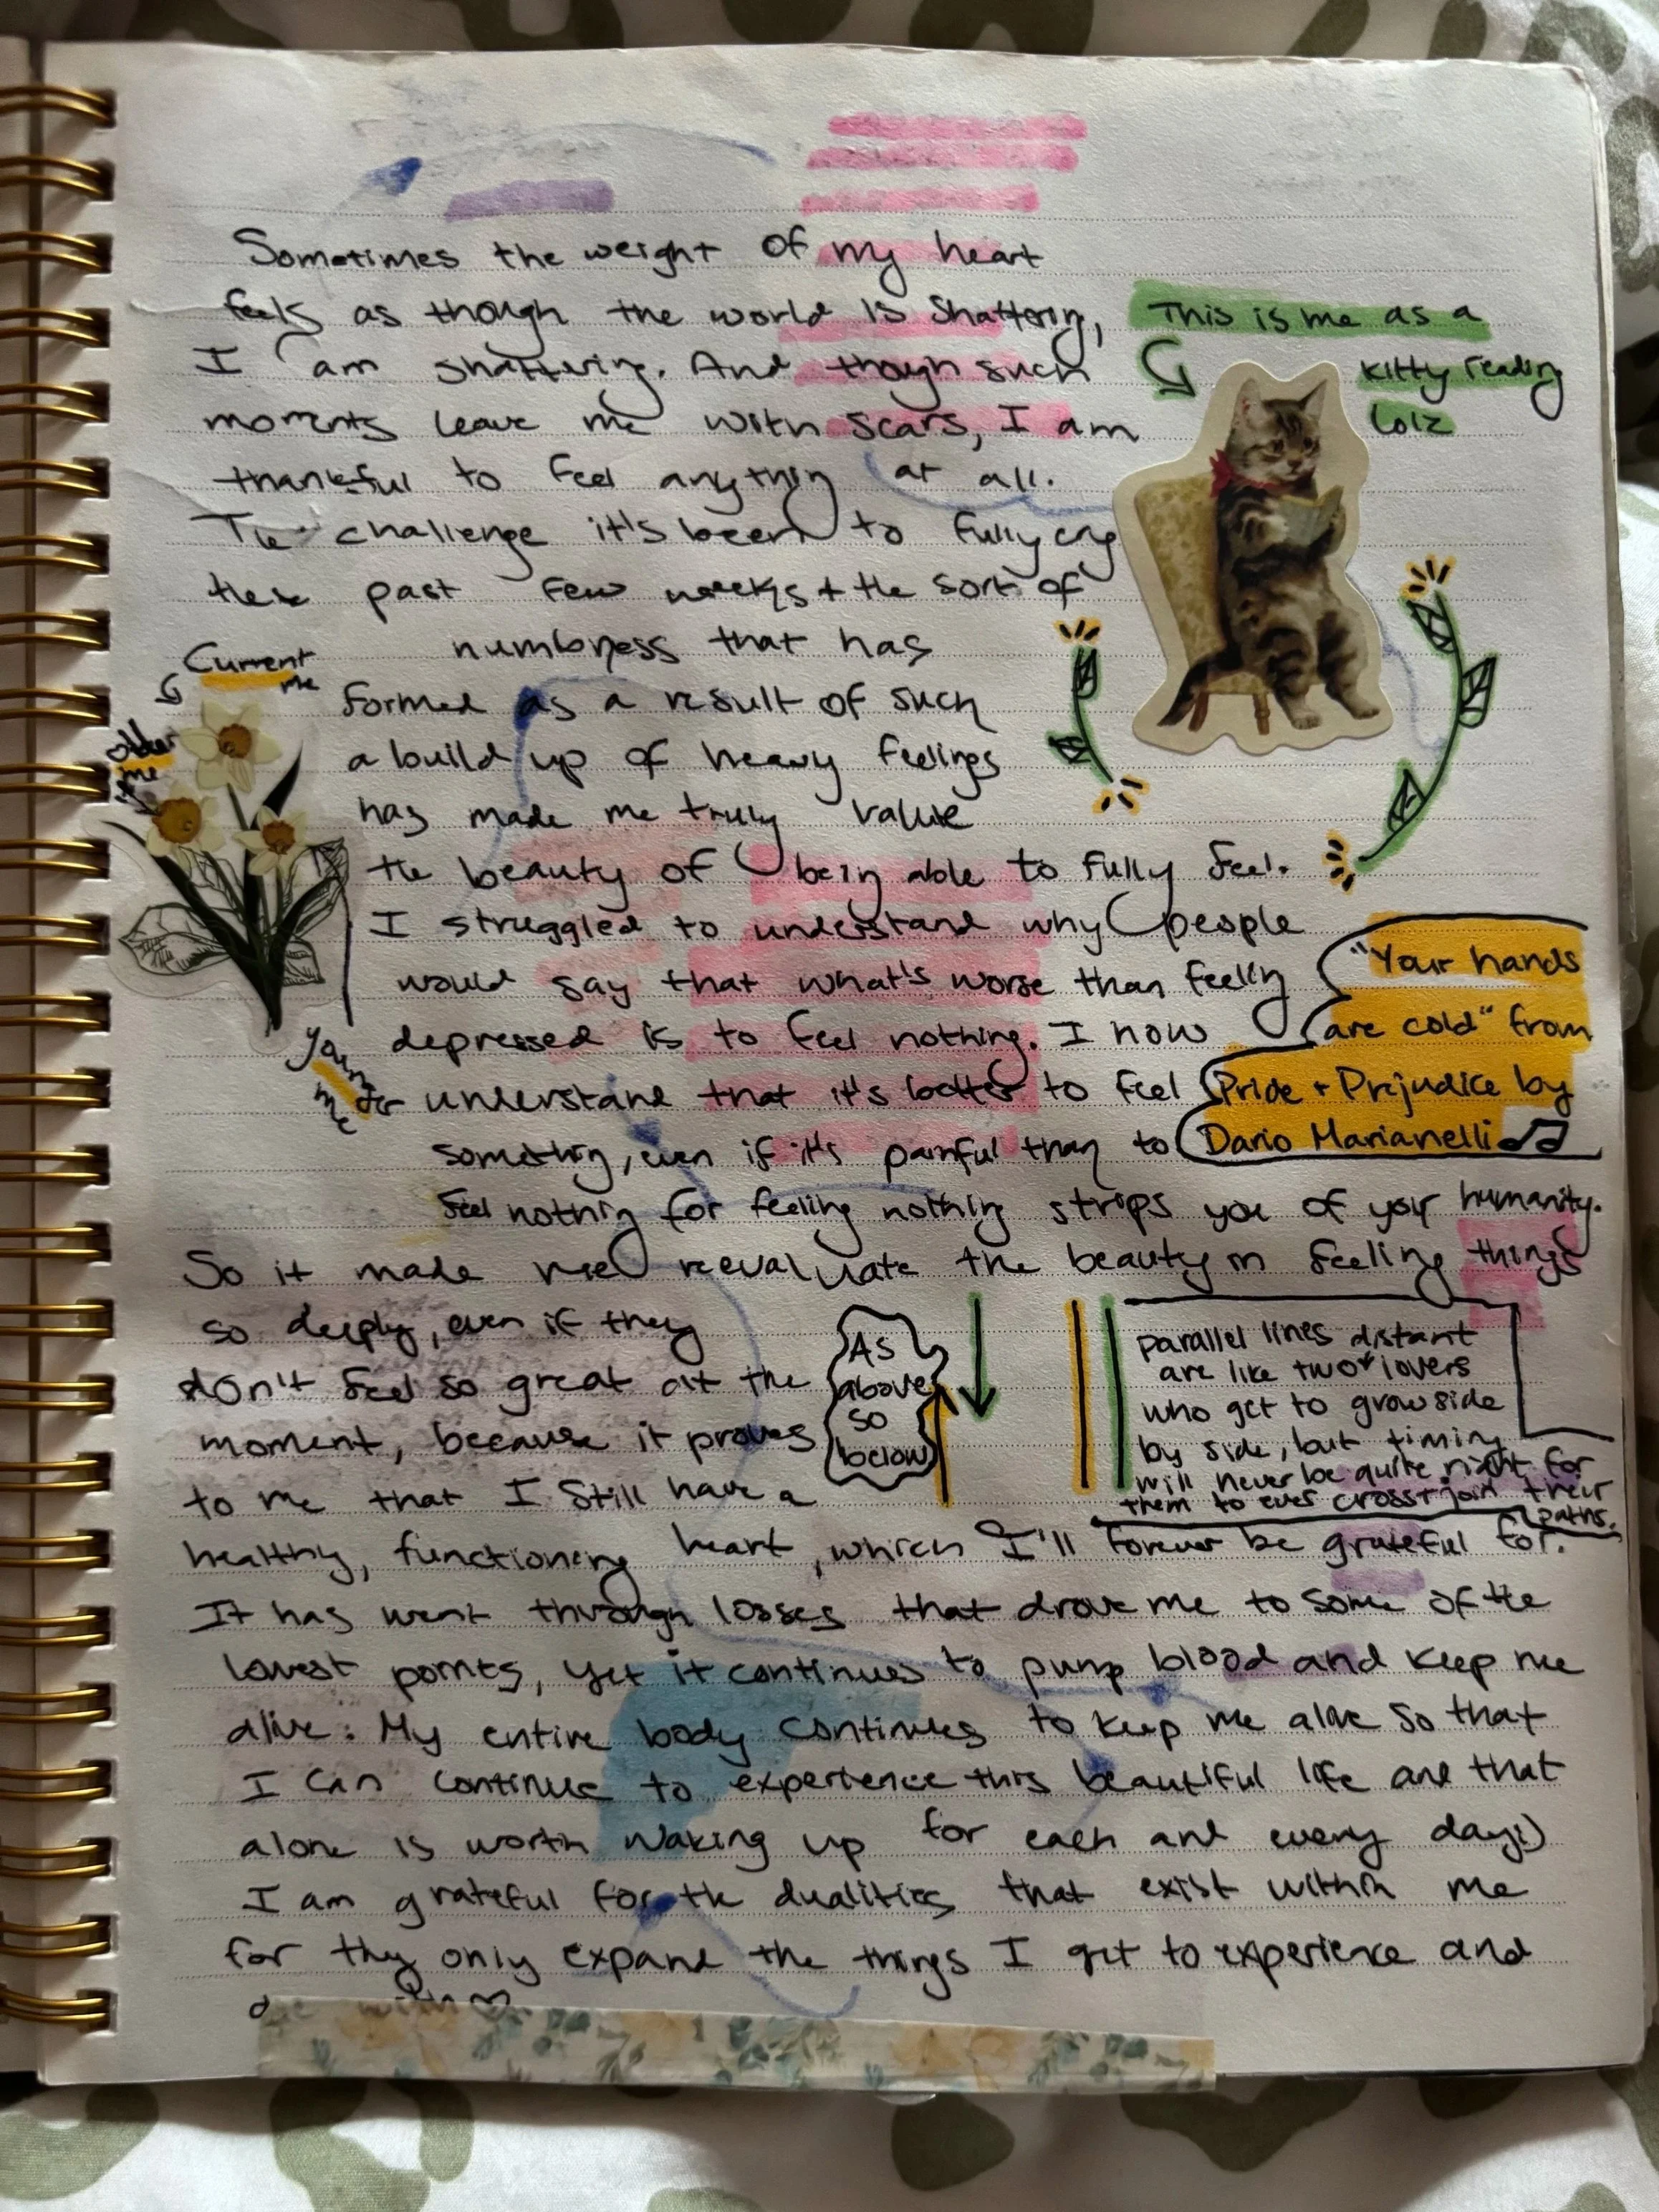 Sometimes the weight of my heart
feels as though the world is shattering,
I am shattering. And though such
moments leave me with scars, I am
thankful to feel anything at all.
The challenge it's been to fully cry
these past few weeks + the sort of
numbness that has
formed as a result of such
a build up of heavy feelings
has made me truly value
the beauty of being able to fully feel.
I struggled to understand why people
would say that what's worse than feeling
depressed is to feel nothing. I now
understand that it's better to feel
something, even if it's painful than to
feel nothing for feeling nothing strips you of your humanity.
So it made me reevaluate the beauty in feeling things
so deeply, even if they
don't feel so great at the
moment, because it proves
to me that I still have a
healthy, functioning heart, which I'll forever be grateful for.
It has went through losses that drove me to some of the
lowest points, yet it continues to pump blood and keep me
alive. My entire body continues to keep me alive so that
I can continue to experience this beautiful life and that
alone is worth waking up for each and every day:)
I am grateful for the dualities that exist within me
for they only expand the things I get to experience and
This is me as a
kitty reading
lolz
Current
me
older
me
younger
me
"Your hands
are cold" from
Pride + Prejudice by
Dario Marianelli
As
above
so
below
parallel lines distant
are like two lovers
who get to grow side
by side, but timing
will never be quite right for
them to ever cross + join their
paths.